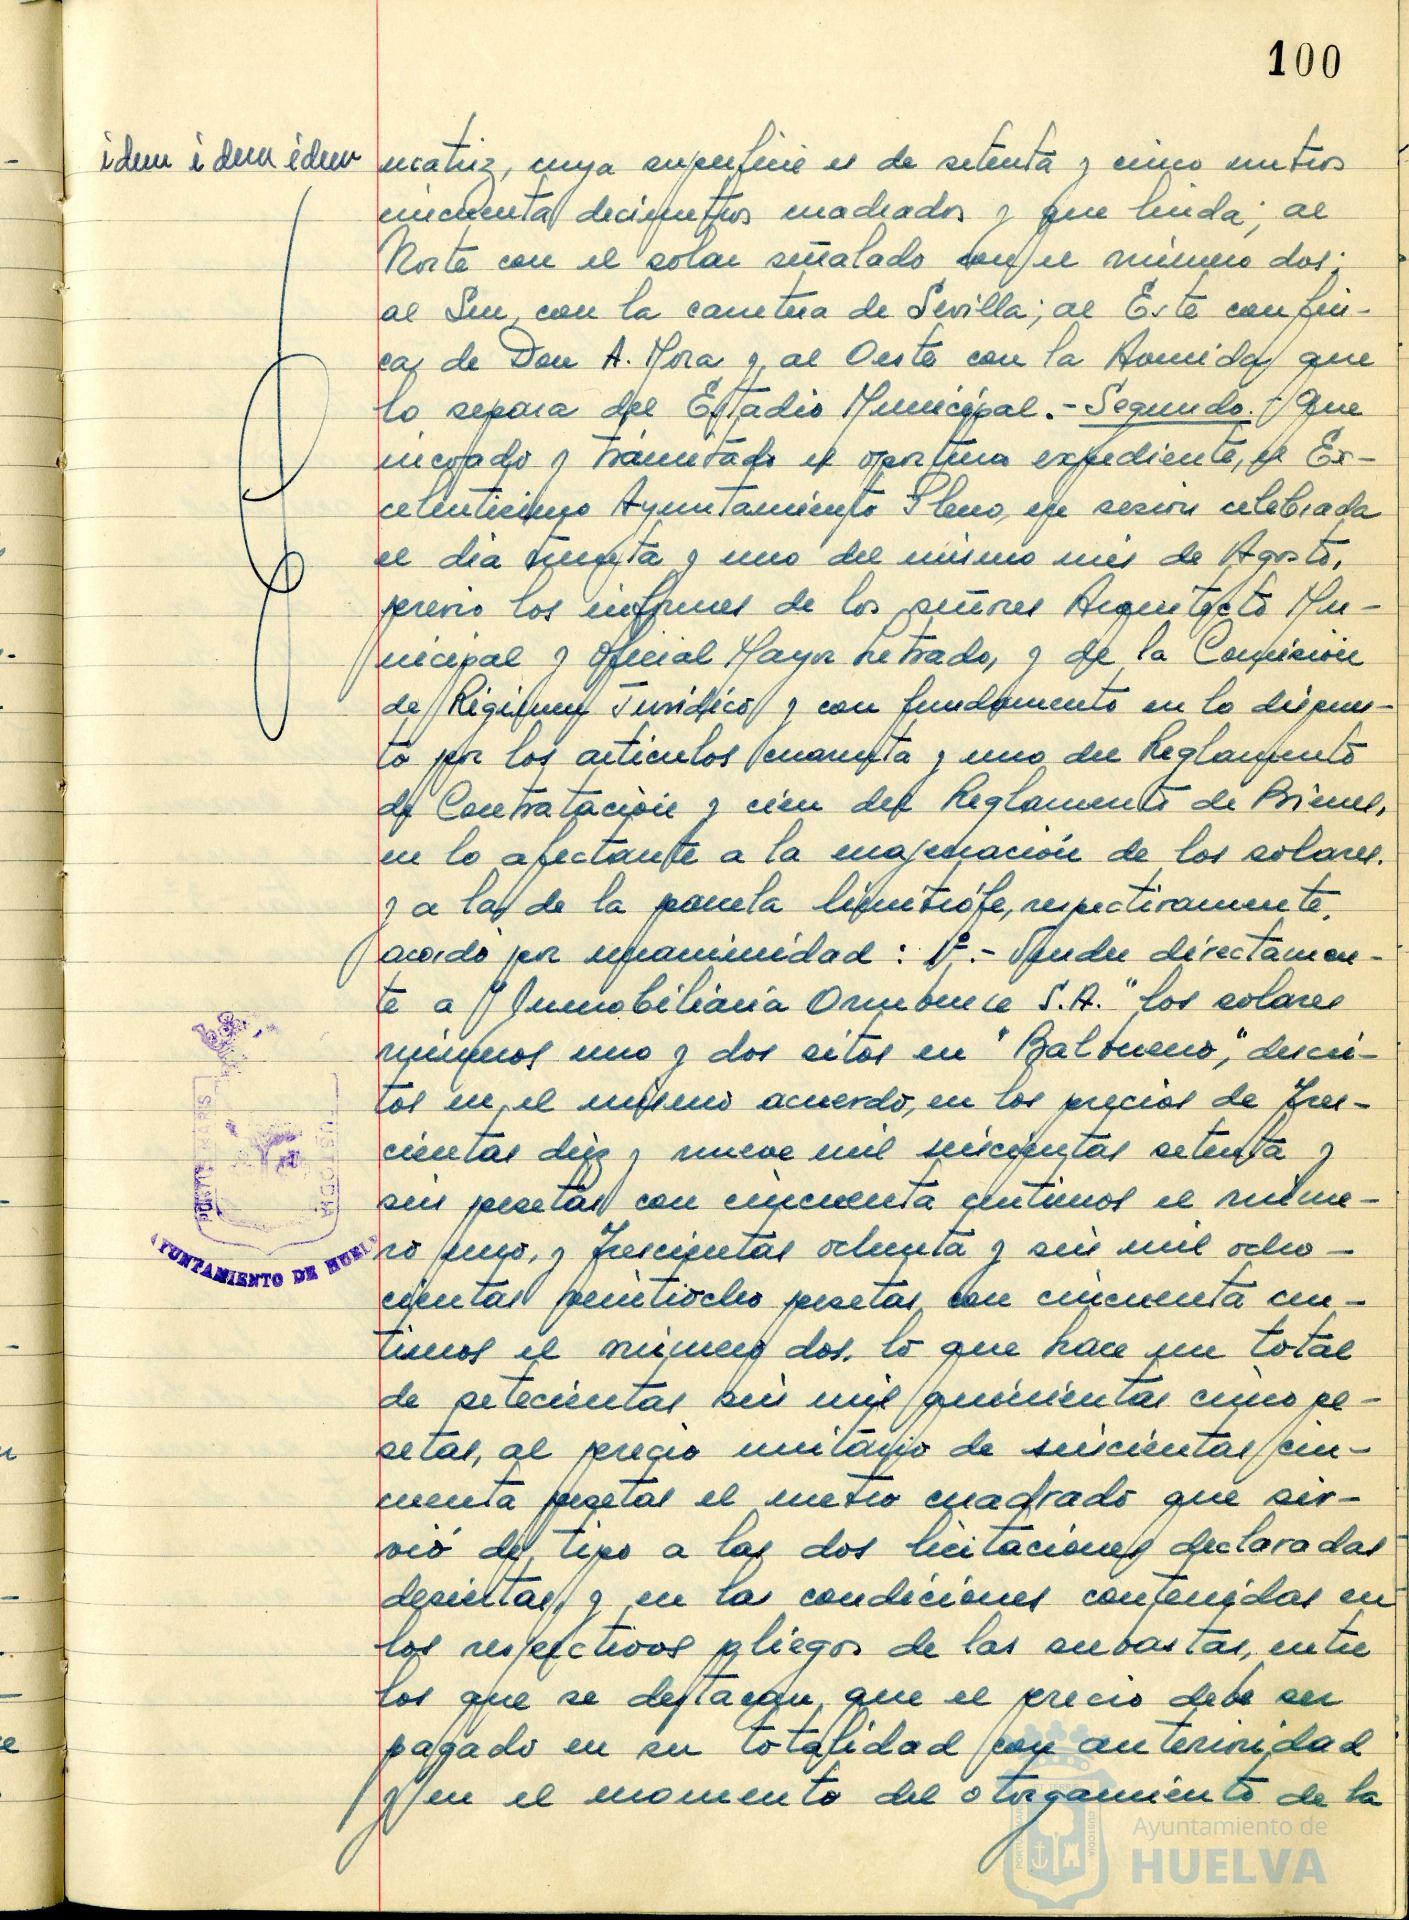 100
idem idem idem
matriz, cuya superficie es de setenta y cinco metros
cincuenta decímetros cuadrados y que linda; al
Norte con el solar señalado con el número dos;
al Sur, con la carretera de Sevilla; al Este con fin-
ca de Don A. Mora y al Oeste con la Avenida que
lo separa del Estadio Municipal.- Segundo.- Que
incoado y tramitado el oportuno expediente, el Ex-
celentísimo Ayuntamiento Pleno, en sesión celebrada
el día treinta y uno del mismo mes de Agosto,
previo los informes de los señores Arquitecto Mu-
nicipal y Oficial Mayor Letrado, y de la Comisión
de Régimen Jurídico y con fundamento en lo dispues-
to por los artículos cuarenta y uno del Reglamento
de Contratación y cien del Reglamento de Bienes,
en lo afectante a la enajenación de los solares,
y a la de la parcela limítrofe, respectivamente,
acordó por unanimidad: 1º.- Vender directamen-
te a "Inmobiliaria S.A." los solares
números uno y dos sitos en "Balbueno", descri-
tos en el mismo acuerdo, en los precios de Tres-
cientas diez y nueve mil seiscientas setenta y
seis pesetas con cincuenta céntimos el núme-
ro uno, y Trescientas ochenta y seis mil ocho-
cientas veintiocho pesetas con cincuenta cén-
timos el número dos, lo que hace un total
de setecientas seis mil quinientas cinco pe-
setas, al precio unitario de seiscientas cin-
cuenta pesetas el metro cuadrado que sir-
vió de tipo a las dos licitaciones declaradas
desiertas, y en las condiciones contenidas en
los respectivos pliegos de las subastas, entre
los que se destacan, que el precio debe ser
pagado en su totalidad con anterioridad
y en el momento del otorgamiento de la
PORTUS MARIS
CUSTODIA
AYUNTAMIENTO DE HUELV
Ayuntamiento de
HUELVA